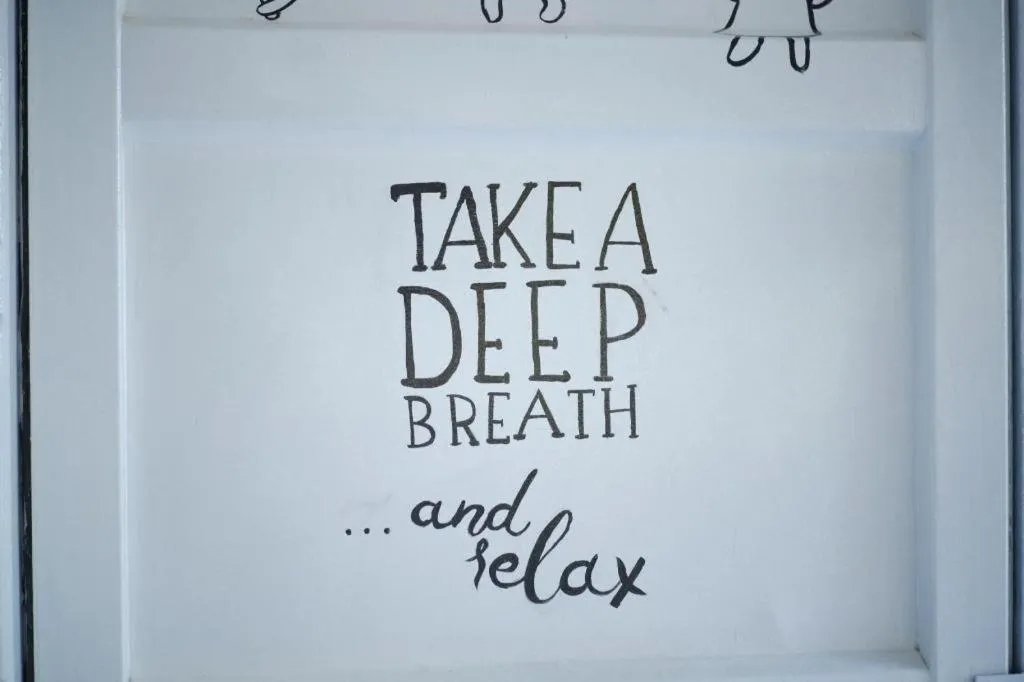 TAKE A
DEEP
BREATH
... and
relax